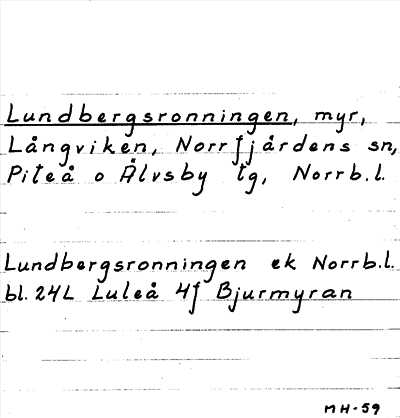 Lundbergsronningen, myr,
Långviken, Norrfjärdens sn,
Piteå o Älvsby tg, Norrb.l.
Lundbergsronningen ek Norrb.l.
bl. 24L Luleå 4f Bjurmyran
MH-59